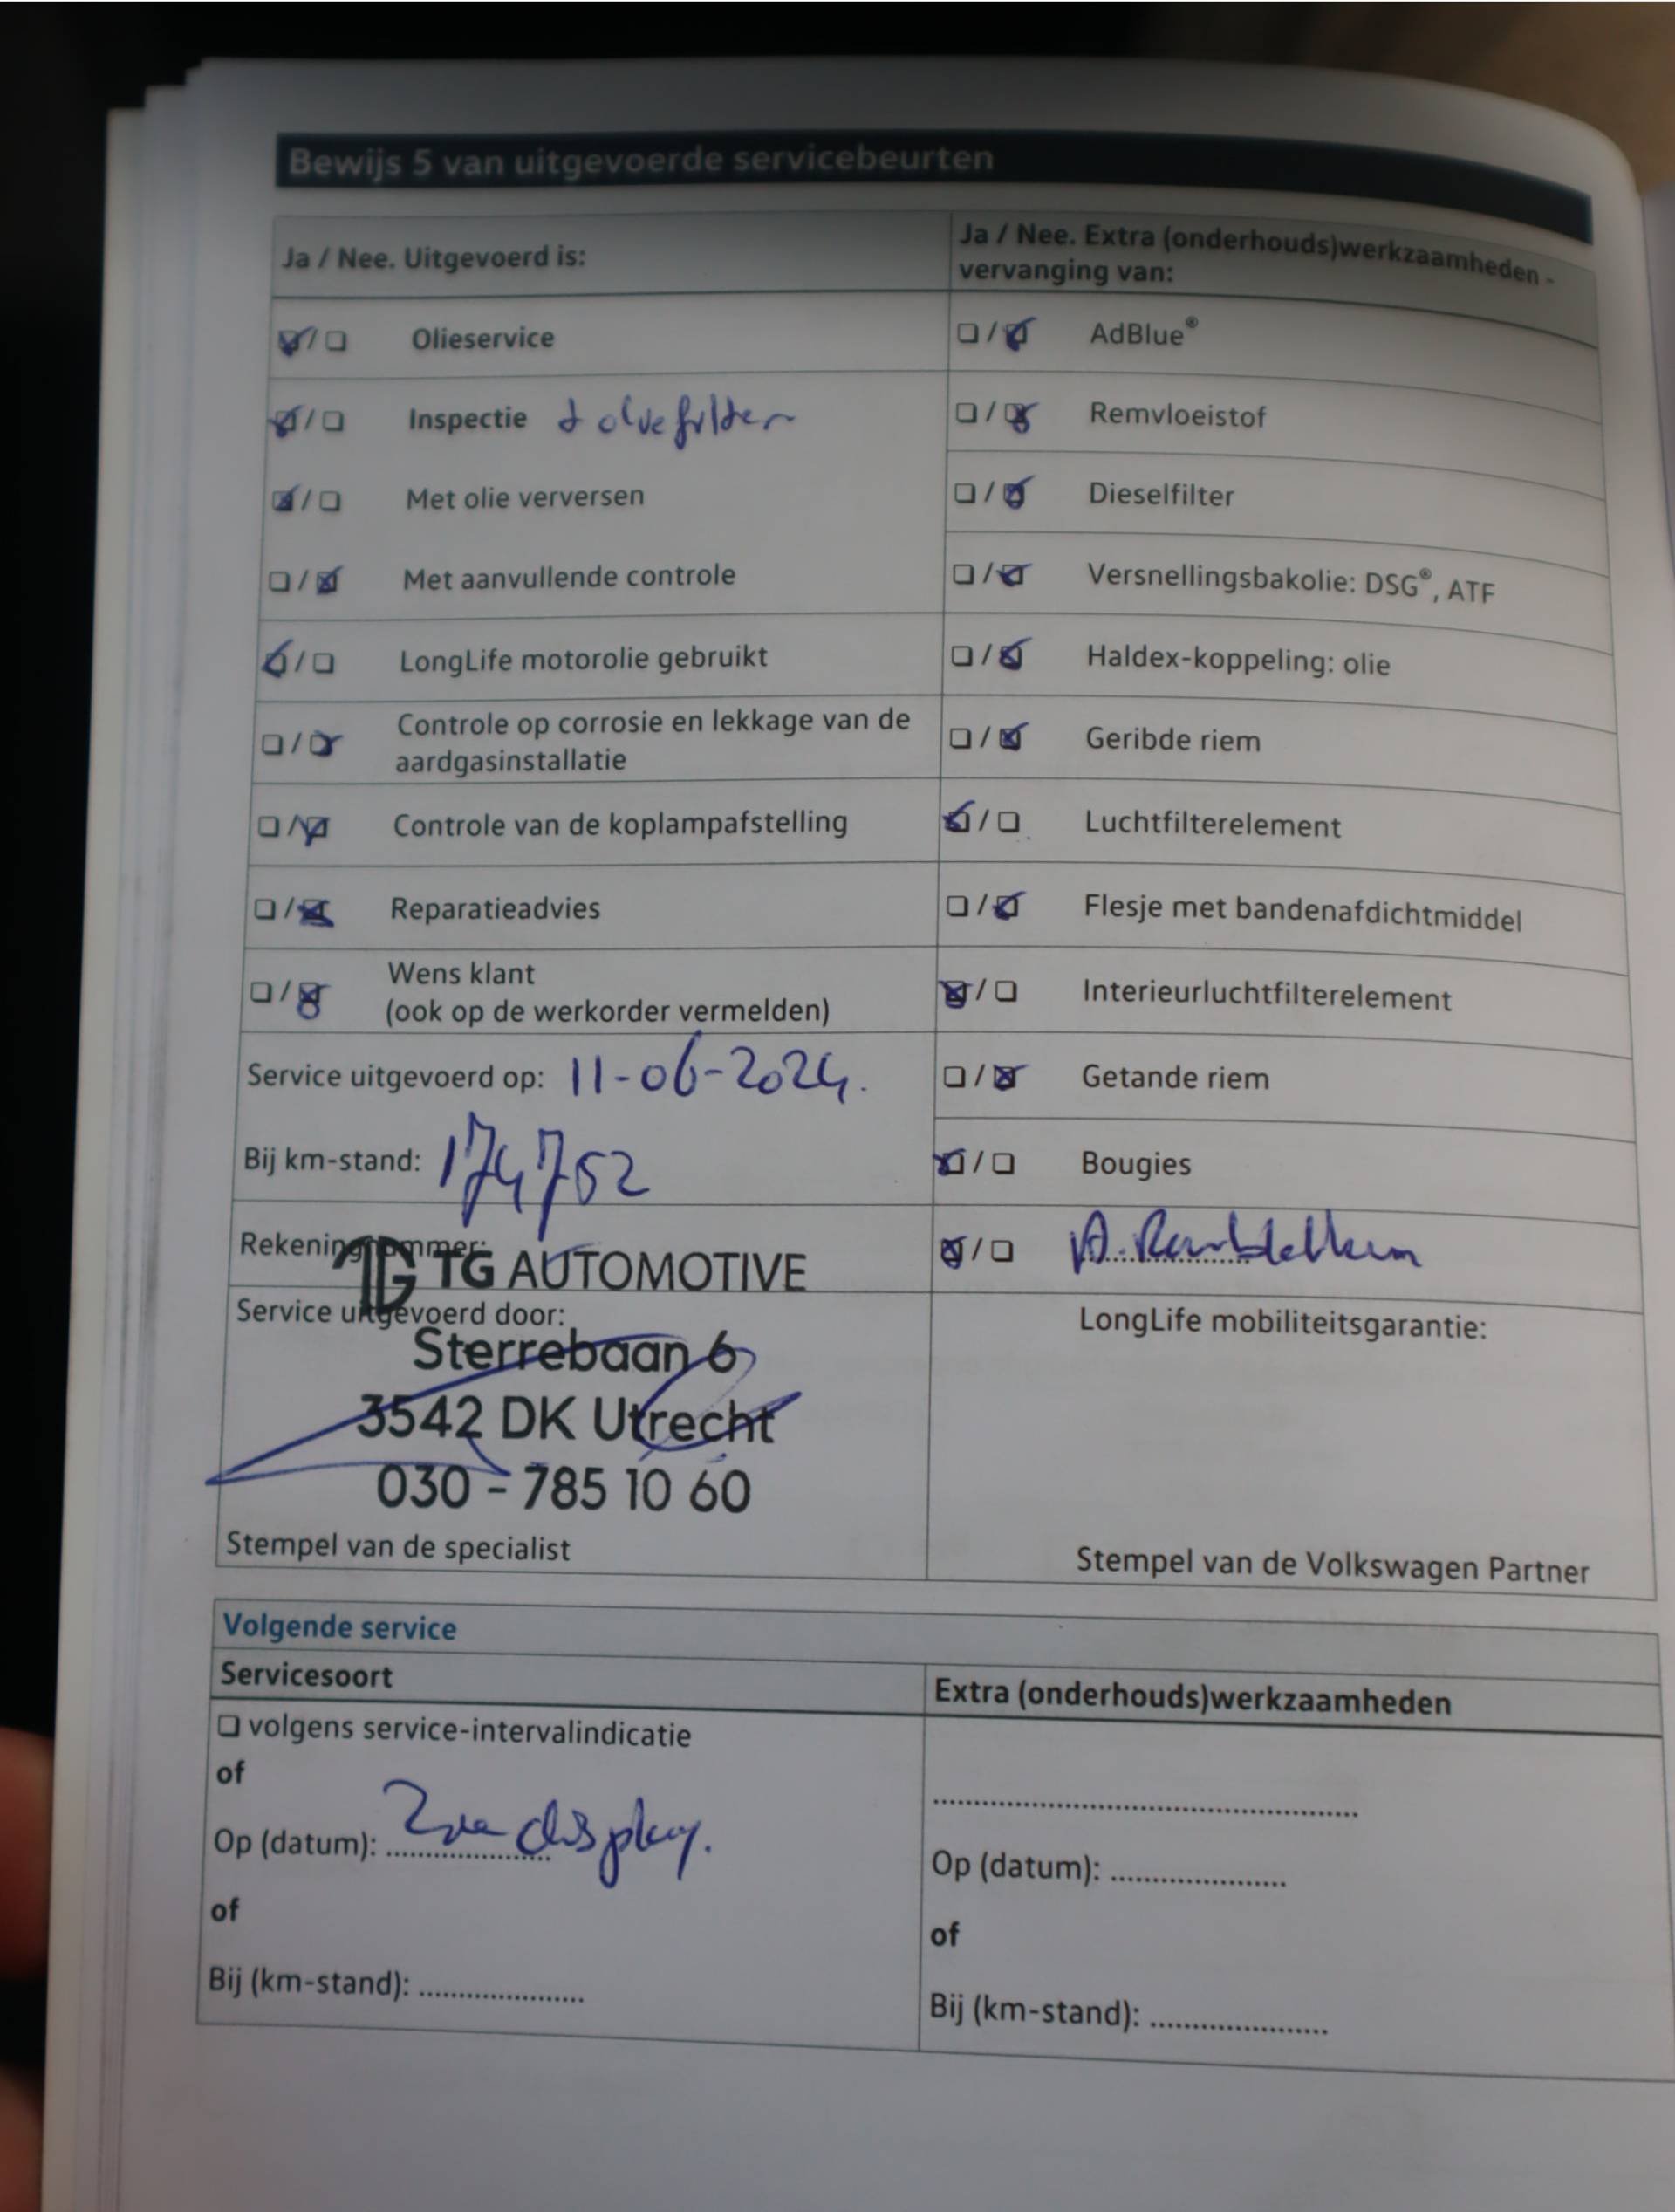 Bewijs 5 van uitgevoerde servicebeurten
Ja / Nee. Uitgevoerd is:
Olieservice
Inspectie + oliefilter
Met olie verversen
Met aanvullende controle
LongLife motorolie gebruikt
Controle op corrosie en lekkage van de
aardgasinstallatie
Controle van de koplampafstelling
Reparatieadvies
Wens klant
(ook op de werkorder vermelden)
Service uitgevoerd op: 11-06-2024.
Bij km-stand: 174752
Rekeningnummer:
TG AUTOMOTIVE
Service uitgevoerd door:
Sterrebaan 6
3542 DK Utrecht
030 - 785 10 60
Stempel van de specialist
Ja / Nee. Extra (onderhouds)werkzaamheden -
vervanging van:
AdBlue®
Remvloeistof
Dieselfilter
Versnellingsbakolie: DSG®, ATF
Haldex-koppeling: olie
Geribde riem
Luchtfilterelement
Flesje met bandenafdichtmiddel
Interieurluchtfilterelement
Getande riem
Bougies
LongLife mobiliteitsgarantie:
Stempel van de Volkswagen Partner
Volgende service
Servicesoort
volgens service-intervalindicatie
of
Op (datum): Zie display.
of
Bij (km-stand):
Extra (onderhouds)werkzaamheden
Op (datum):
of
Bij (km-stand):